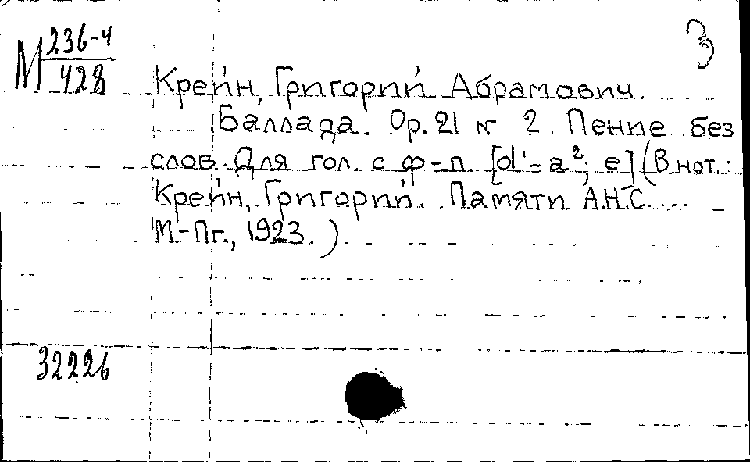 3
М 236-4
428
Крейн, Григорий Абрамович.
Баллада. Ор. 21 № 2. Пение без
слов. Для гол. с ф-п. [d'-a²; e] (В нот.:
Крейн, Григорий. Памяти А.Н.С.
М.-Пг., 1923.)
32226